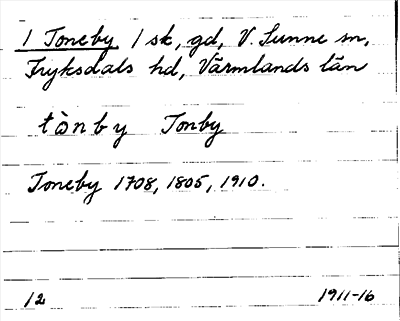 1 Toneby 1 sk, gd, V. Sunne sn,
Fryksdals hd, Värmlands län
tὰnby Tonby
Toneby 1708, 1805, 1910.
12 1911-16